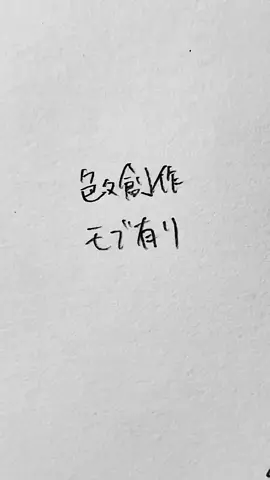 色々創作
モブ有り